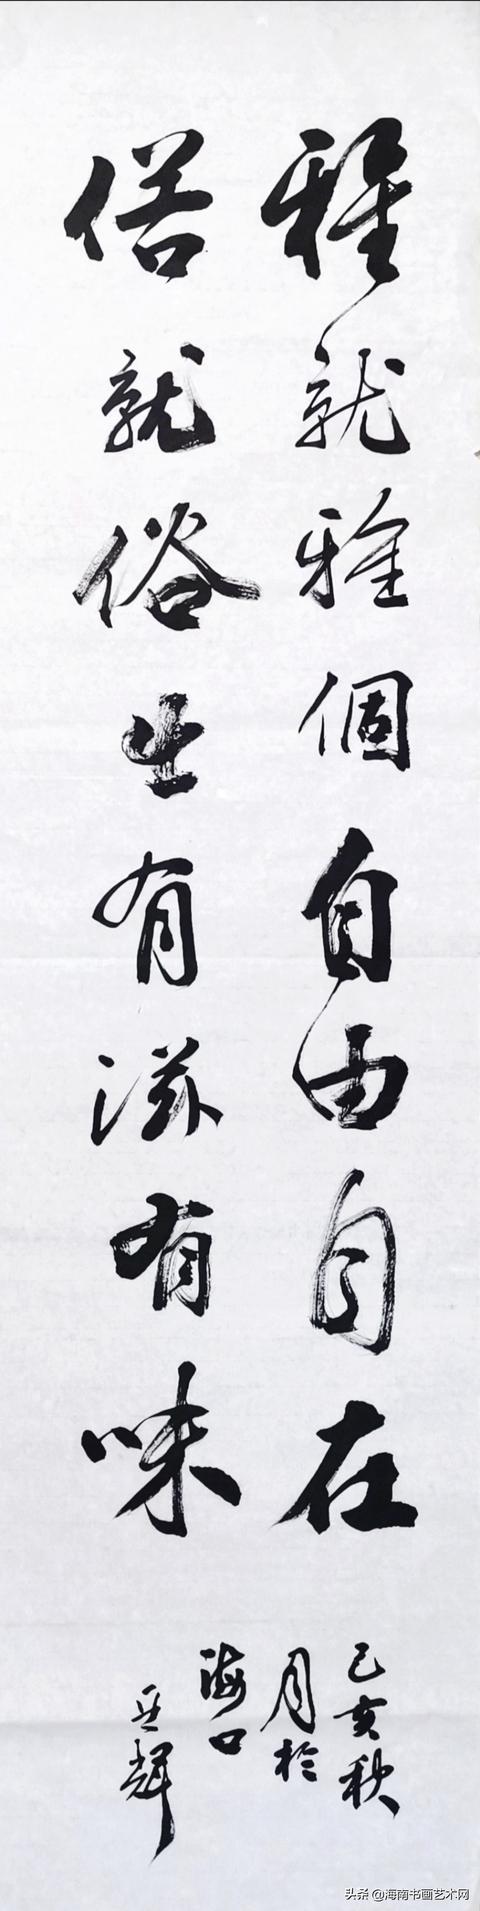 雅就雅個自由自在
俗就俗出有滋有味
己亥秋
月於
海口
亚輝
头条@海南书画艺术网